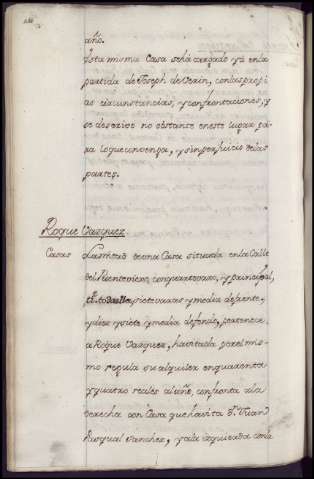 año.
Esta misma Casa se há cargado yá en la
partida de Joseph de Verin, con las propi
as circunstancias, y confrontaciones, y
se describe no obstante en este lugar pa
ra lo que convenga, y sin perjuicio de las
partes.
Roque Vazquez.
Casas La mitad de una Casa situada en la Calle
del Puenteviexo, con quarto vaxo, y principal,
siete varas y media de frente,
y diez y siete y media de fondo, pertenece
a Roque Vazquez, havitada por el mis
mo regula su alquiler en quarenta
y quatro reales al año, confronta a la
derecha con Casa que havita Dn. Juan
Pasqual Sanchez, y a la izquierda con la